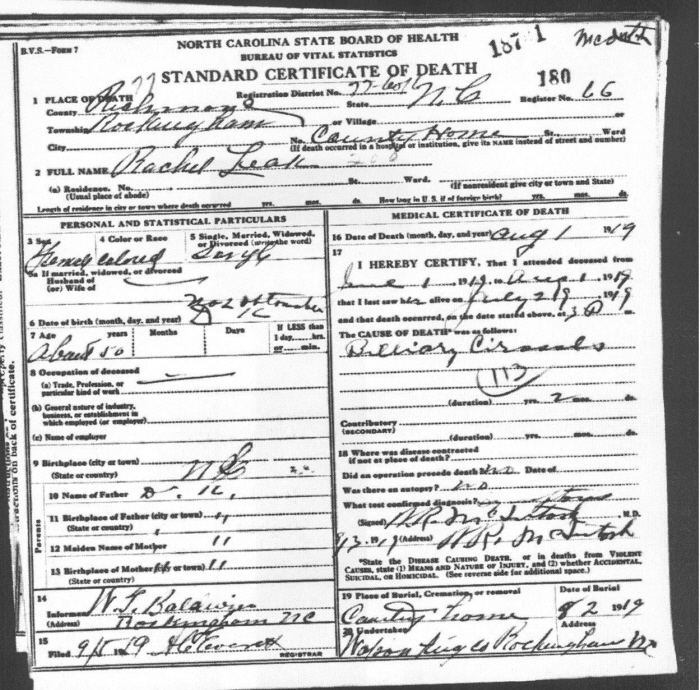 B.V.S.—FORM 7
NORTH CAROLINA STATE BOARD OF HEALTH
BUREAU OF VITAL STATISTICS
STANDARD CERTIFICATE OF DEATH
180
1 PLACE OF DEATH
Registration District No.
Register No. 66
County Richmond State N.C.
Township Rockingham or Village or
City No. County Home St. Ward
(If death occurred in a hospital or institution, give its NAME instead of street and number)
2 FULL NAME Rachel Leak
(a) Residence. No. St. Ward.
(Usual place of abode) (If nonresident give city or town and State)
Length of residence in city or town where death occurred yrs. mos. ds. How long in U. S. if of foreign birth? yrs. mos. ds.
PERSONAL AND STATISTICAL PARTICULARS
3 Sex 4 Color or Race 5 Single, Married, Widowed, or Divorced (write the word)
Female colored Single
5a If married, widowed, or divorced
Husband of
(or) Wife of
6 Date of birth (month, day, and year)
7 Age years Months Days If LESS than 1 day, hrs. or min.
About 50
8 Occupation of deceased
(a) Trade, Profession, or particular kind of work
(b) General nature of industry, business, or establishment in which employed (or employer)
(c) Name of employer
9 Birthplace (city or town)
(State or country) N C
Parents
10 Name of Father D. K.
11 Birthplace of Father (city or town) "
(State or country)
12 Maiden Name of Mother "
13 Birthplace of Mother (city or town) "
(State or country)
14
Informant W. T. Baldwin
(Address) Rockingham NC
15
Filed 9/5 1919
REGISTRAR
MEDICAL CERTIFICATE OF DEATH
16 Date of Death (month, day, and year) Aug 1 1919
17
I HEREBY CERTIFY, That I attended deceased from
June 1 1919, to Aug 1 1919
that I last saw her alive on July 29 1919
and that death occurred, on the date stated above, at 3 P m.
The CAUSE OF DEATH* was as follows:
113
(duration) yrs. 2 mos. ds.
Contributory
(SECONDARY)
(duration) yrs. mos. ds.
18 Where was disease contracted
if not at place of death?
Did an operation precede death? no Date of
Was there an autopsy? no
What test confirmed diagnosis?
(Signed) W.R. McIntosh M.D.
1919 (Address) W.R. McIntosh
*State the DISEASE CAUSING DEATH, or in deaths from VIOLENT
CAUSES, state (1) MEANS AND NATURE OF INJURY, and (2) whether ACCIDENTAL,
SUICIDAL, or HOMICIDAL. (See reverse side for additional space.)
19 Place of Burial, Cremation, or removal Date of Burial
County home 8 2 1919
20 Undertaker Address
Watson King Co Rockingham NC